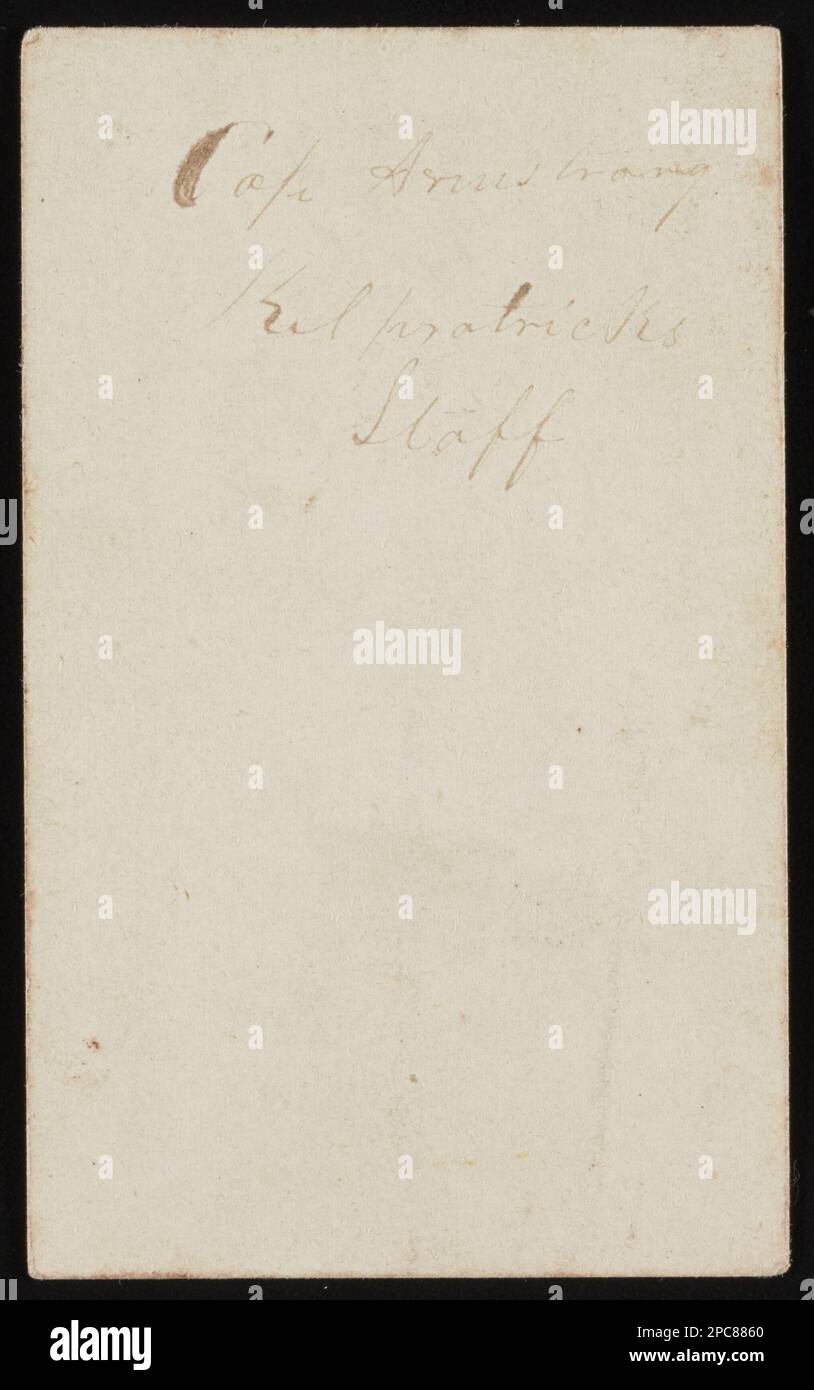 Cap Armstrong
Kilpatricks
Staff
alamy
alamy
alamy
alamy
Image ID: 2PC8860
www.alamy.com